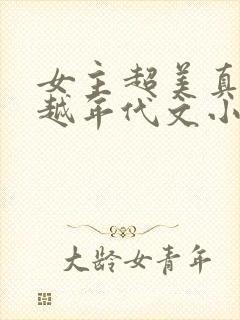 女主超美真
越年代文小
大龄女青年